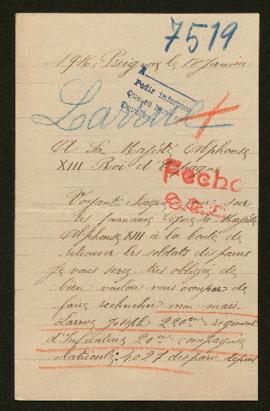 7519
1916 le 18 Janvier
A
Pedir informes
A Sa Majesté Alphonse
XIII Roi d'Espagne
Fecho
Voyant chaque jour sur
les journaux que sa Majesté
Alphonse XIII a la bonté de
retrouver les soldats disparus
je vous serez très obligée de
bien vouloir vous occuper de
faire rechercher mon mari
Joseph 220ème régiment
d'Infanterie 20ème compagnie
Matricule 4027 disparu depuis